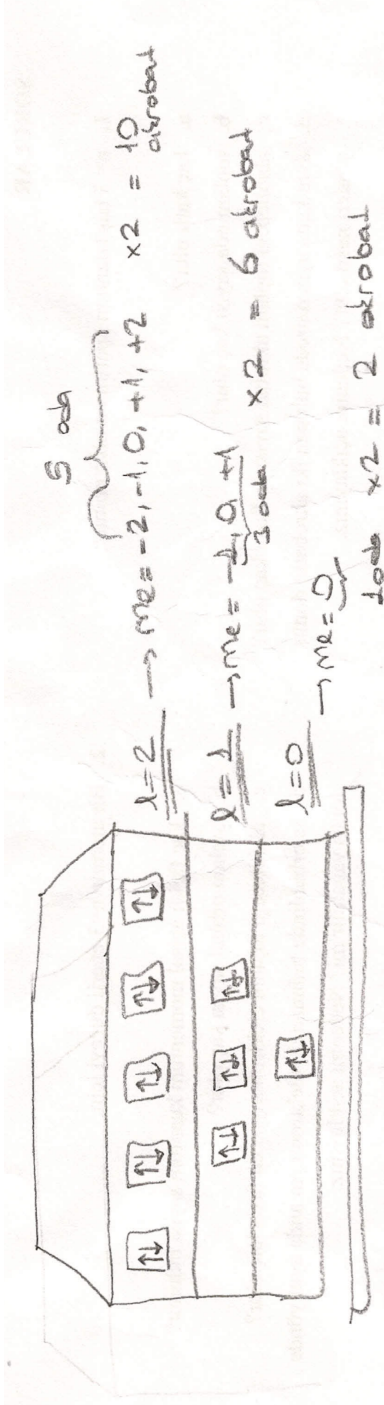 5 oda
l=2 → ml = -2, -1, 0, +1, +2 x2 = 10 akrobat
l=1 → ml = -1, 0, +1 x2 = 6 akrobat
3 oda
l=0 → ml = 0
1 oda x2 = 2 akrobat